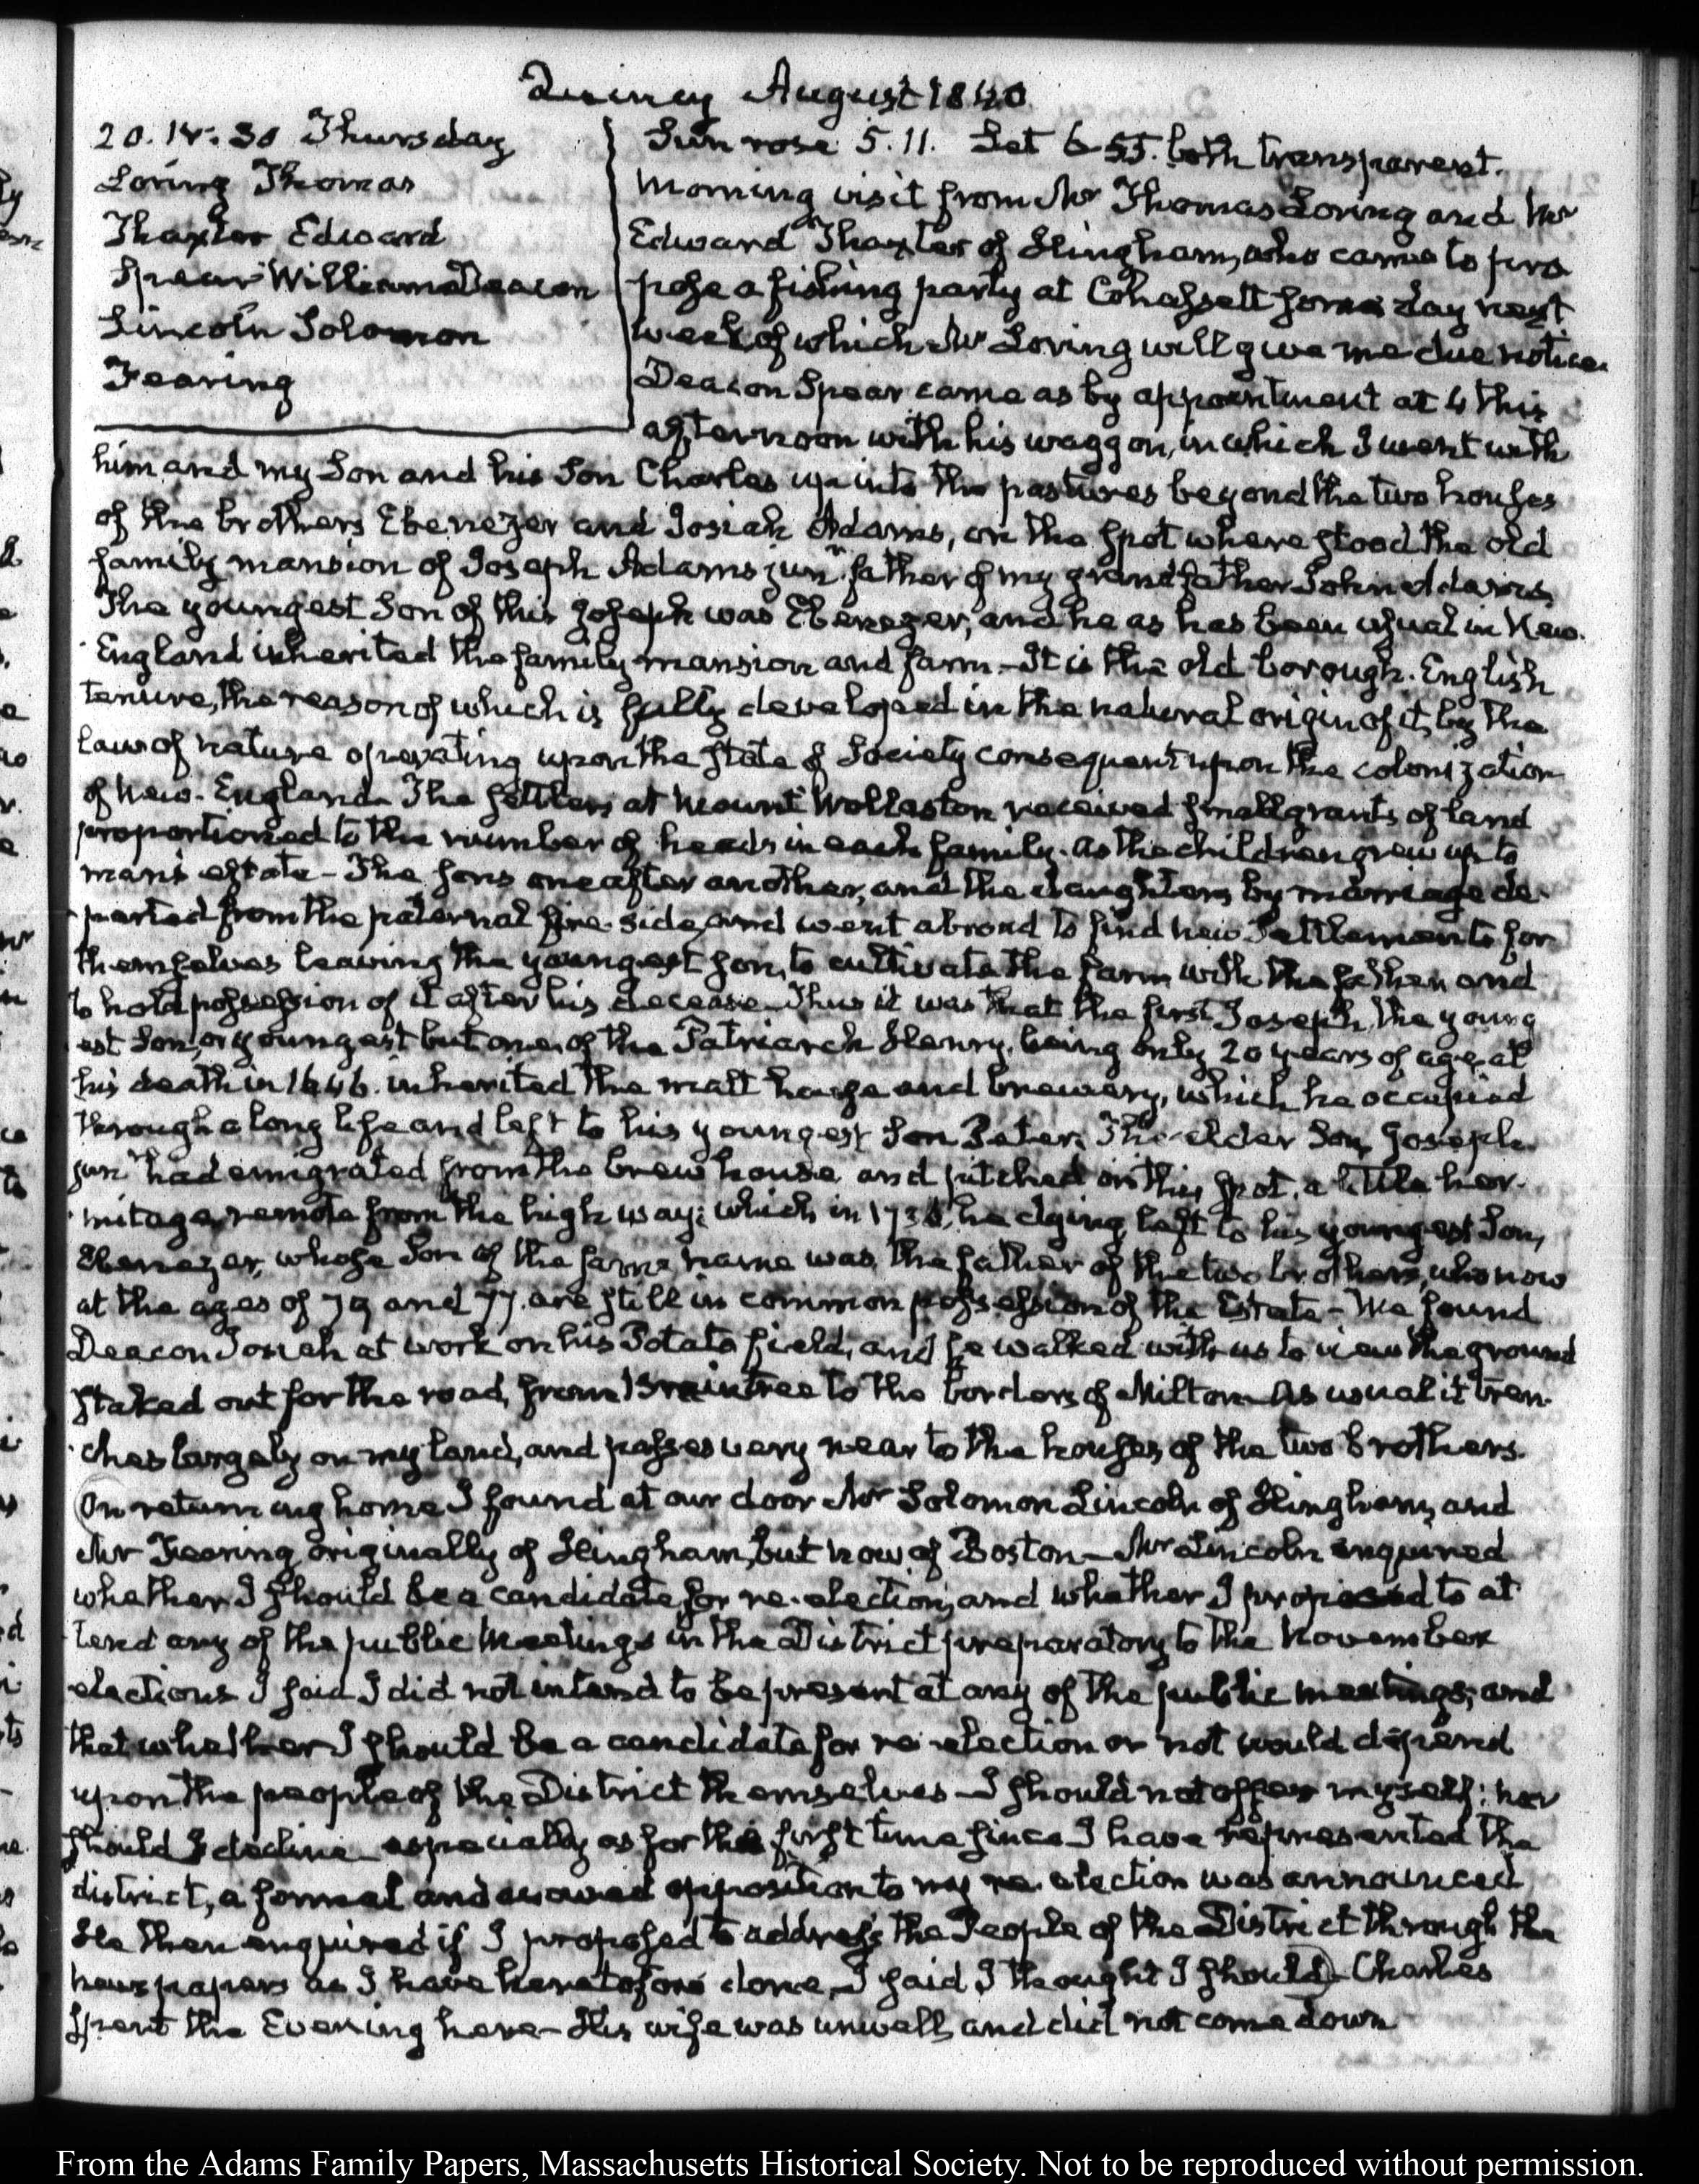 Quincy August 1840
20. IV:30 Thursday
Loring Thomas
Thaxter Edward
Spear William Deacon
Lincoln Solomon
Fearing
Sun rose 5.11. Set 6-55. both transparent.
Morning visit from Mr Thomas Loring and Mr
Edward Thaxter of Hingham, who came to pro
pose a fishing party at Cohassett some day next
week, of which Mr Loring will give me due notice.
Deacon Spear came as by appointment at 4 this
afternoon with his waggon, in which I went with
him and my Son and his Son Charles up into the pastures beyond the two houses
of the brothers Ebenezer and Josiah Adams, on the spot where stood the old
family mansion of Joseph Adams junr. father of my grandfather John Adams,
The youngest Son of this Joseph was Ebenezer, and he as has been usual in New-
England inherited the family mansion and farm. It is the old borough-English
tenure, the reason of which is fully developed in the natural origin of it, by the
law of nature operating upon the state of Society consequent upon the colonization
of New-England. The settlers at Mount Wollaston received small grants of land
proportioned to the number of heads in each family. As the children grew up to
man's estate - The sons one after another, and the daughters by marriage de-
parted from the paternal fire-side, and went abroad to find new Settlements for
themselves leaving the youngest son, to cultivate the farm with the father and
to hold possession of it after his decease - Thus it was that the first Joseph, the young
est Son, or youngest but one, of the Patriarch Henry, being only 20 years of age, at
his death in 1646. inherited the malt house and brewery, which he occupied
through a long life and left to his youngest Son Peter. The elder Son, Joseph
junr had emigrated from the brew house and pitched on this spot, a little her-
mitage, remote from the high way; which in 1736, he dying left to his youngest Son,
Ebenezer, whose Son of the same name was the father of the two brothers, who now
at the ages of 79 and 77. are still in common possession of the Estate - We found
Deacon Josiah at work on his Potato field, and he walked with us to view the ground
staked out for the road, from Braintree to the borders of Milton - As usual it tren-
ches largely on my land, and passes very near to the houses of the two brothers.
On returning home I found at our door Mr Solomon Lincoln of Hingham, and
Mr Fearing, originally of Hingham, but now of Boston - Mr Lincoln enquired
whether I should be a candidate for re-election, and whether I proposed to at
tend any of the public Meetings in the District preparatory to the November
elections I said I did not intend to be present at any of the public meetings, and
that whether I should be a candidate for re-election or not would depend
upon the people of the District themselves - I should not offer myself; nor
should I decline - especially as for the first time since I have represented the
district, a formal and avowed opposition to my re-election was announced
He then enquired if I proposed to address the People of the District through the
newspapers as I have heretofore done, I said I thought I should - Charles
spent the Evening here - His wife was unwell, and did not come down
From the Adams Family Papers, Massachusetts Historical Society. Not to be reproduced without permission.